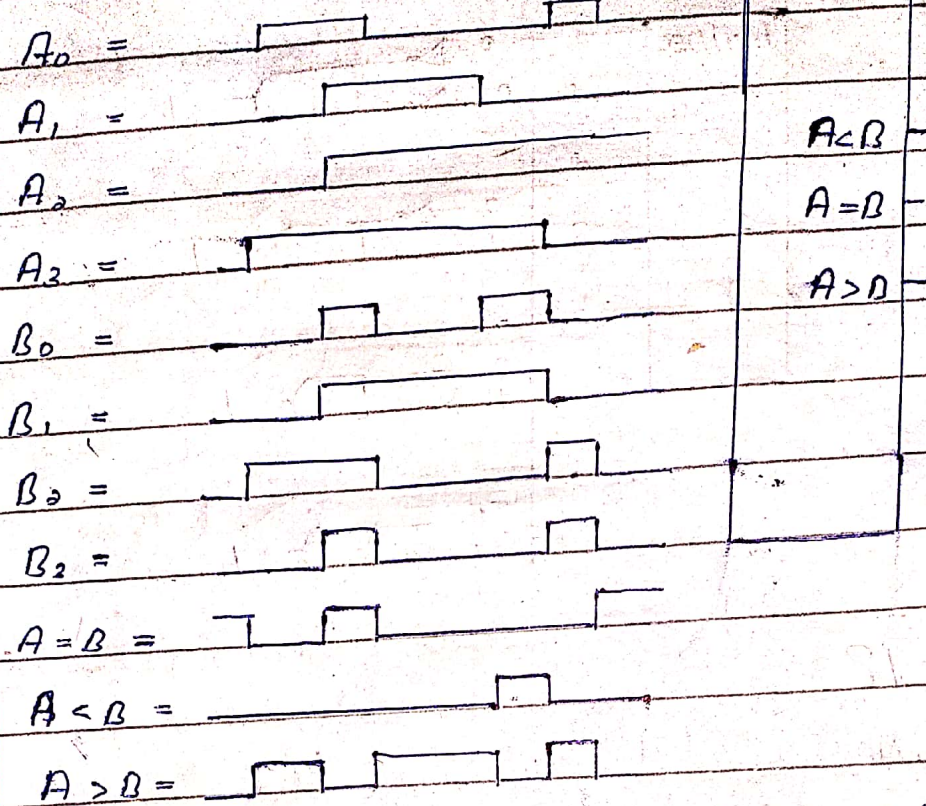 A0 =
A1 =
A2 =
A3 =
B0 =
B1 =
B2 =
B3 =
A = B =
A < B =
A > B =
A<B
A=B
A>B